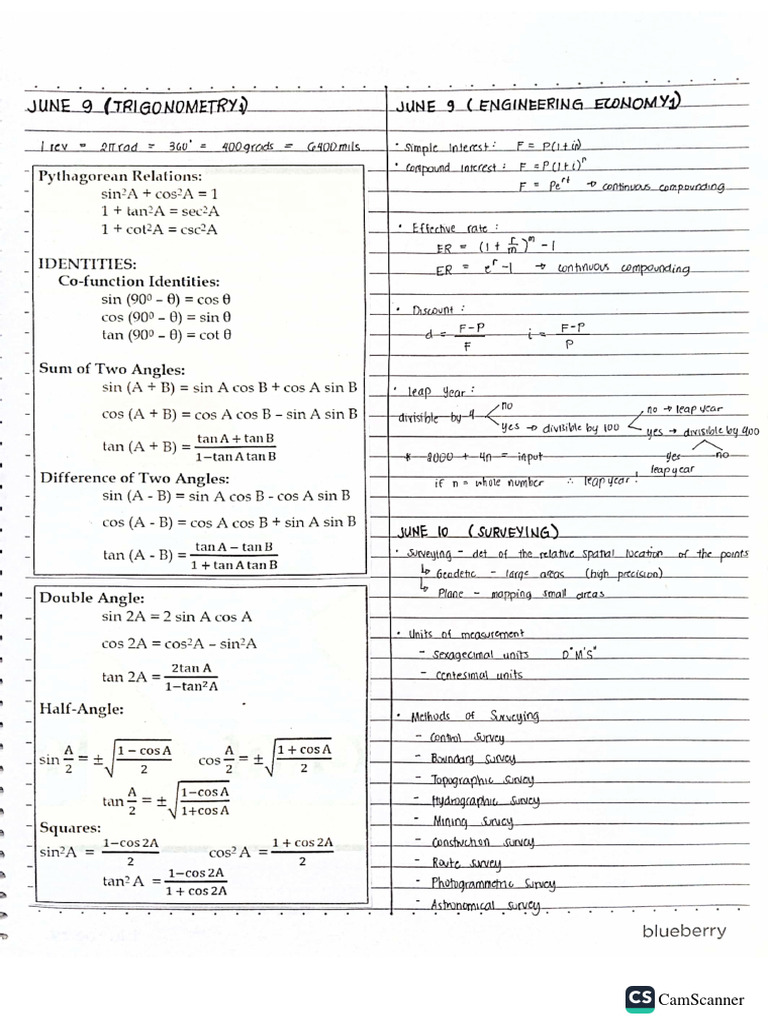 JUNE 9 (TRIGONOMETRY)
1 rev = 2π rad = 360° = 400 grads = 6400 mils
Pythagorean Relations:
sin²A + cos²A = 1
1 + tan²A = sec²A
1 + cot²A = csc²A
IDENTITIES:
Co-function Identities:
sin (90⁰ – θ) = cos θ
cos (90⁰ – θ) = sin θ
tan (90⁰ – θ) = cot θ
Sum of Two Angles:
sin (A + B) = sin A cos B + cos A sin B
cos (A + B) = cos A cos B – sin A sin B
tan (A + B) = (tan A + tan B)/(1–tan A tan B)
Difference of Two Angles:
sin (A - B) = sin A cos B - cos A sin B
cos (A - B) = cos A cos B + sin A sin B
tan (A - B) = (tan A – tan B)/(1 + tan A tan B)
Double Angle:
sin 2A = 2 sin A cos A
cos 2A = cos²A – sin²A
tan 2A = (2tan A)/(1–tan²A)
Half-Angle:
sin A/2 = ±√((1 – cos A)/2) cos A/2 = ±√((1 + cos A)/2)
tan A/2 = ±√((1–cos A)/(1+cos A))
Squares:
sin²A = (1–cos 2A)/2 cos² A = (1 + cos 2A)/2
tan² A = (1–cos 2A)/(1 + cos 2A)
JUNE 9 (ENGINEERING ECONOMY)
• Simple Interest: F = P(1+in)
• Compound Interest: F = P(1+i)ⁿ
F = Pe^rt → continuous compounding
• Effective rate:
ER = (1 + r/m)^m - 1
ER = e^r - 1 → continuous compounding
• Discount:
d = (F-P)/F i = (F-P)/P
• leap year:
divisible by 4
no
yes → divisible by 100
no → leap year
yes → divisible by 400
yes no
leap year
* 2000 + 4n = input
if n = whole number ∴ leap year!
JUNE 10 (SURVEYING)
• Surveying - det of the relative spatial location of the points
↳ Geodetic - large areas (high precision)
↳ Plane - mapping small areas
• Units of measurement
- sexagecimal units D°M'S"
- centesimal units
• Methods of Surveying
- Control Survey
- Boundary Survey
- Topographic Survey
- Hydrographic Survey
- Mining Survey
- Construction Survey
- Route Survey
- Photogrammetric Survey
- Astronomical Survey
blueberry
CS CamScanner